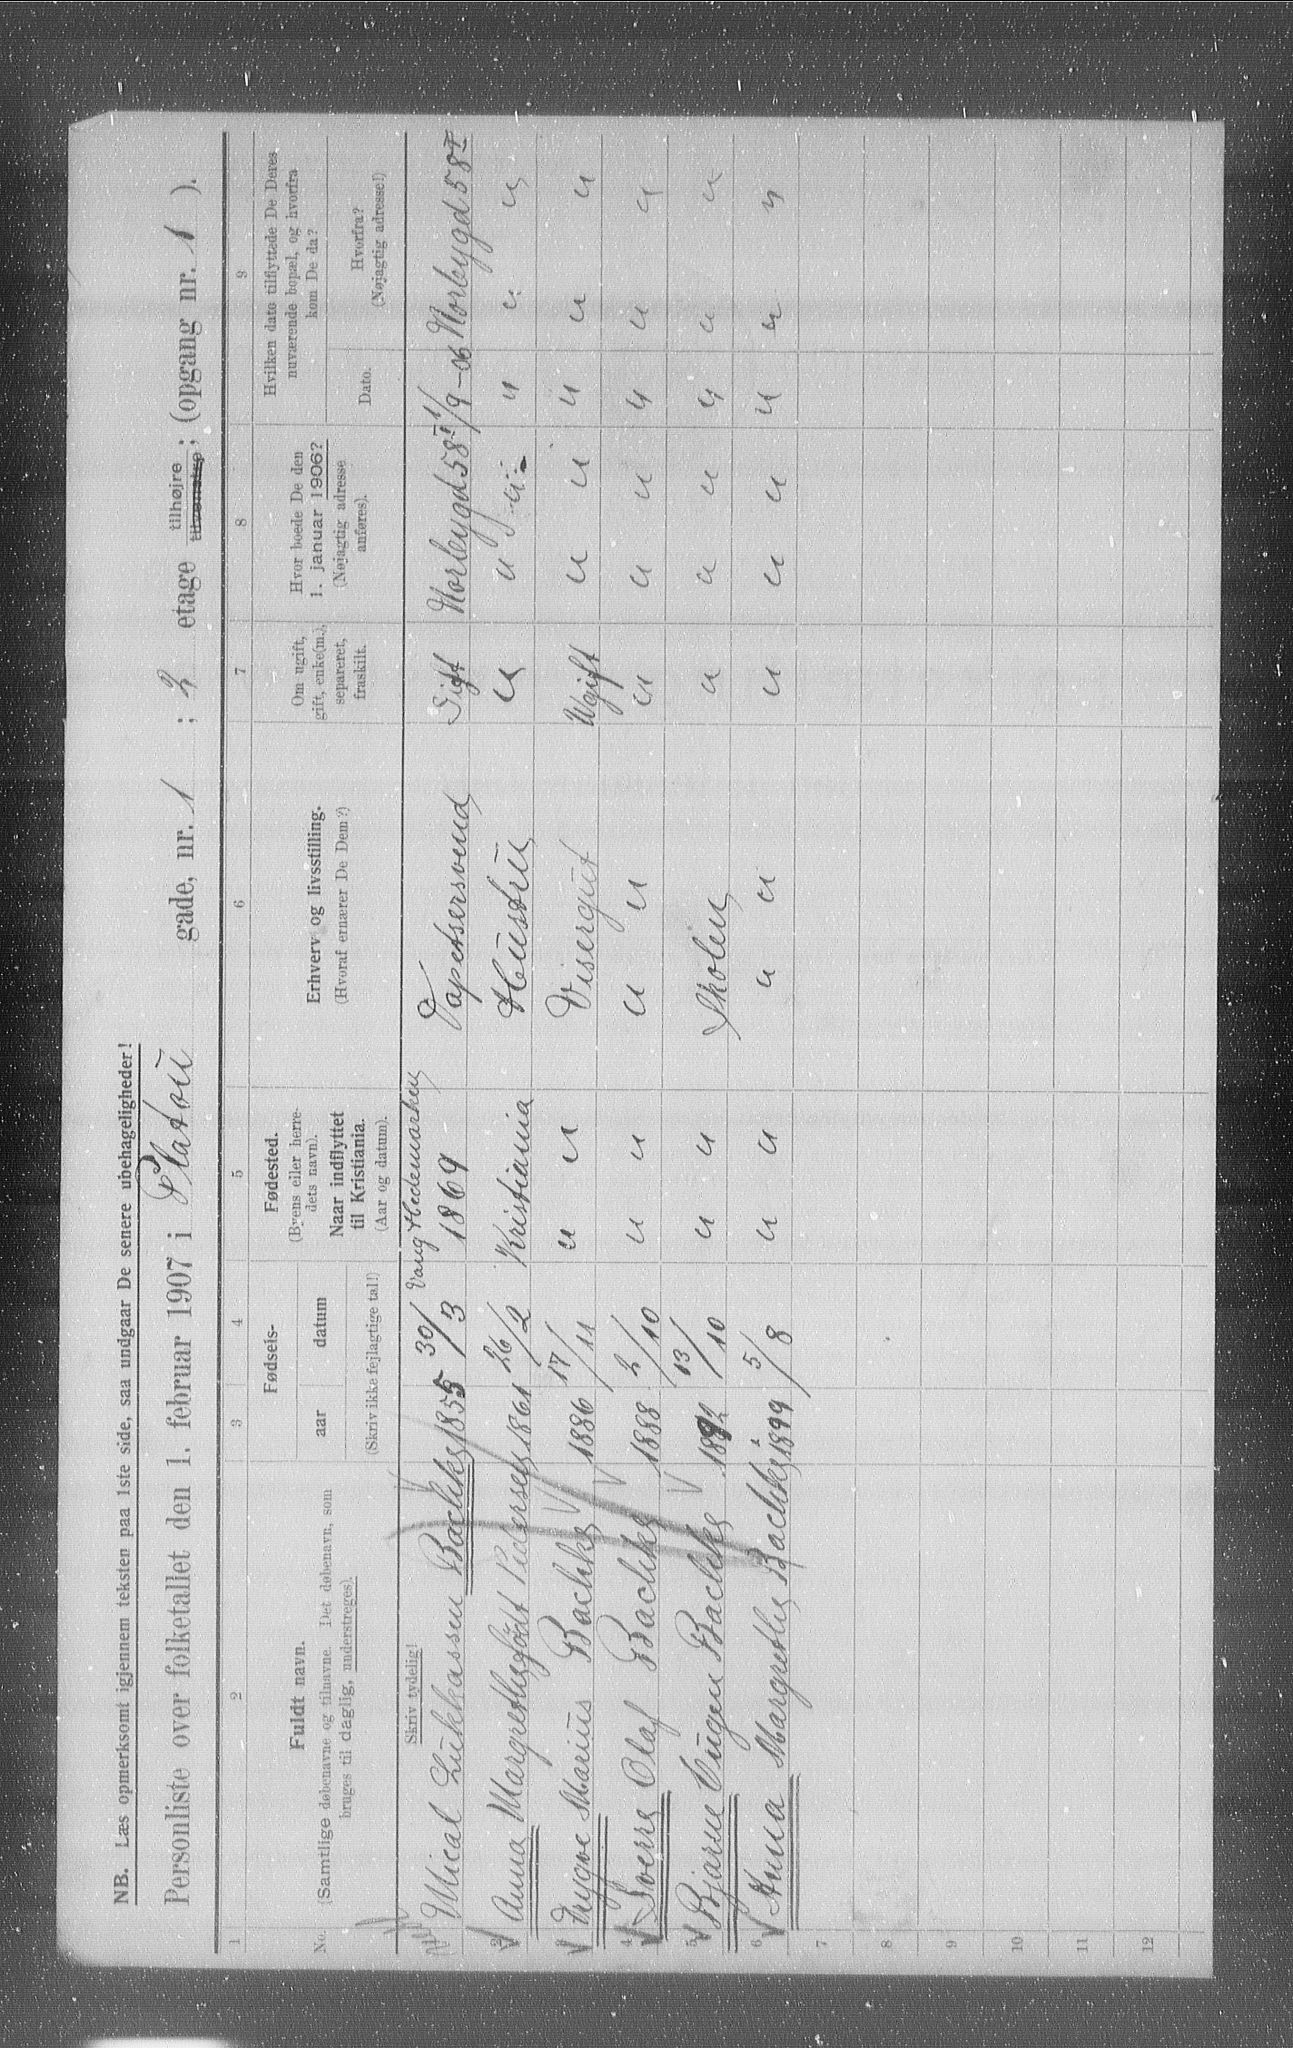 NB. Læs opmerksomt igjennem teksten paa 1ste side, saa undgaar De senere ubehageligheder!
Personliste over folketallet den 1. februar 1907 i Platou gade, nr. 1 ; 2 etage tilhøjre tilvenstre; (opgang nr. 1 ).
1 2 3 4 5 6 7 8 9
No. Fuldt navn. (Samtlige døbenavne og tilnavne. Det døbenavn, som bruges til daglig, understreges).
Fødsels- aar datum (Skriv ikke fejlagtige tal!)
Fødested. (Byens eller herredets navn). Naar indflyttet til Kristiania. (Aar og datum).
Erhverv og livsstilling. (Hvoraf ernærer De Dem?)
Om ugift, gift, enke(m.), separeret, fraskilt.
Hvor boede De den 1. januar 1906? (Nøjagtig adresse anføres).
Hvilken dato tilflyttede De Deres nuværende bopæl, og hvorfra kom De da?
Dato. Hvorfra? (Nøjagtig adresse!)
Skriv tydelig!
Mical Lukkassen Bachke 1855 30/3 Vang Hedemarken 1869 Tapetsersvend Gift Norbygd 58 I 1/9-06 Norbygd 58 I
2 Anna Margrethe født Pedersen 1861 26/2 Kristiania Hustru " " " " " "
3 Trygve Marius Bachke 1886 17/11 " " Visergut Ugift " " " " "
4 Sverre Olaf Bachke 1888 2/10 " " " " " " " " " "
5 Bjarne Eugen Bachke 1892 13/10 " " Skolen " " " " " "
6 Anna Margrethe Bachke 1899 5/8 " " " " " " " " " "
7
8
9
10
11
12